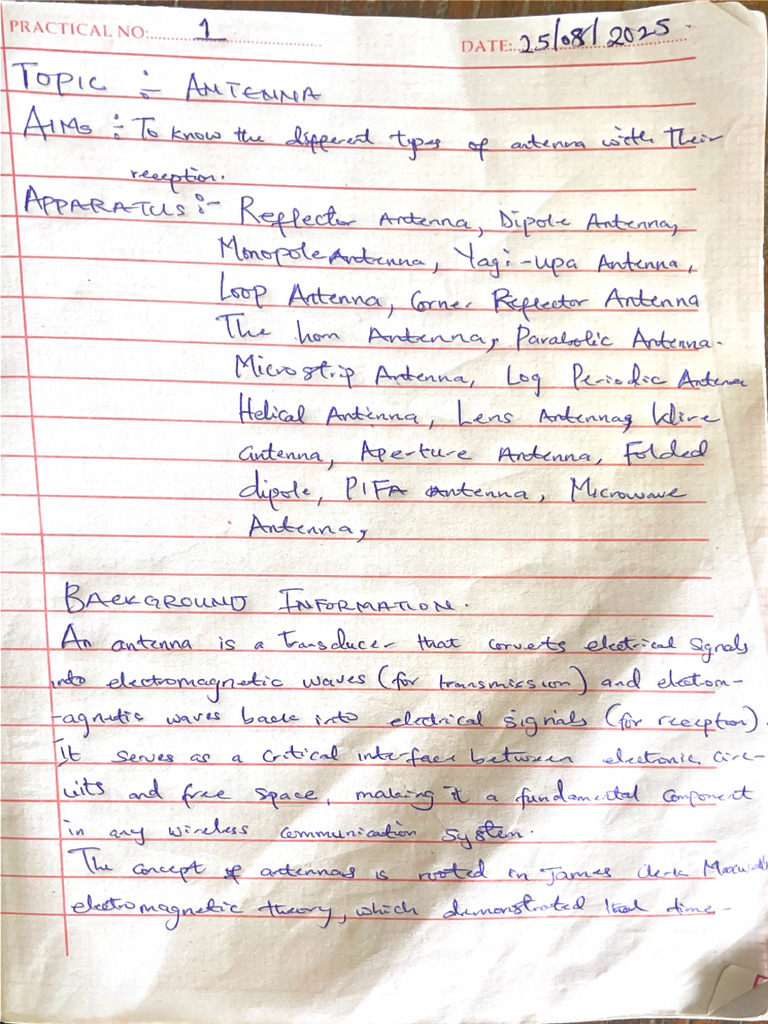 PRACTICAL NO: 1
DATE: 25/08/2025
TOPIC :- ANTENNA
AIMS :- To know the different types of antenna with their
reception.
APPARATUS :- Reflector Antenna, Dipole Antenna,
Monopole Antenna, Yagi-upa Antenna,
Loop Antenna, Corner Reflector Antenna
The horn Antenna, Parabolic Antenna.
Microstrip Antenna, Log Periodic Antenna
Helical Antenna, Lens Antenna, Wire
antenna, Aperture Antenna, Folded
dipole, PIFA antenna, Microwave
Antenna,
BACKGROUND INFORMATION.
An antenna is a transducer that converts electrical signals
into electromagnetic waves (for transmission) and electrom-
-agnetic waves back into electrical signals (for reception).
It serves as a critical interface between electronic circ-
uits and free space, making it a fundamental component
in any wireless communication system.
The concept of antennas is rooted in James Clerk Maxwell's
electromagnetic theory, which demonstrated that time-